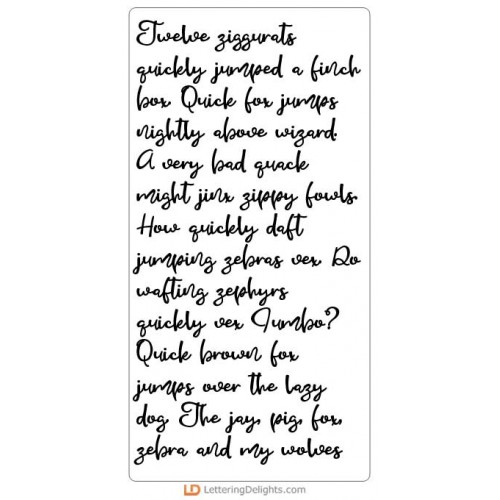 Twelve ziggurats
quickly jumped a finch
box. Quick fox jumps
nightly above wizard.
A very bad quack
might jinx zippy fowls.
How quickly daft
jumping zebras vex. Do
wafting zephyrs
quickly vex Jumbo?
Quick brown fox
jumps over the lazy
dog. The jay, pig, fox,
zebra and my wolves
LD LetteringDelights.com